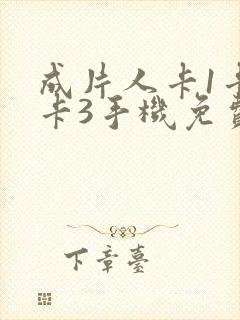 成片人卡1卡
卡3手機免費
下章臺